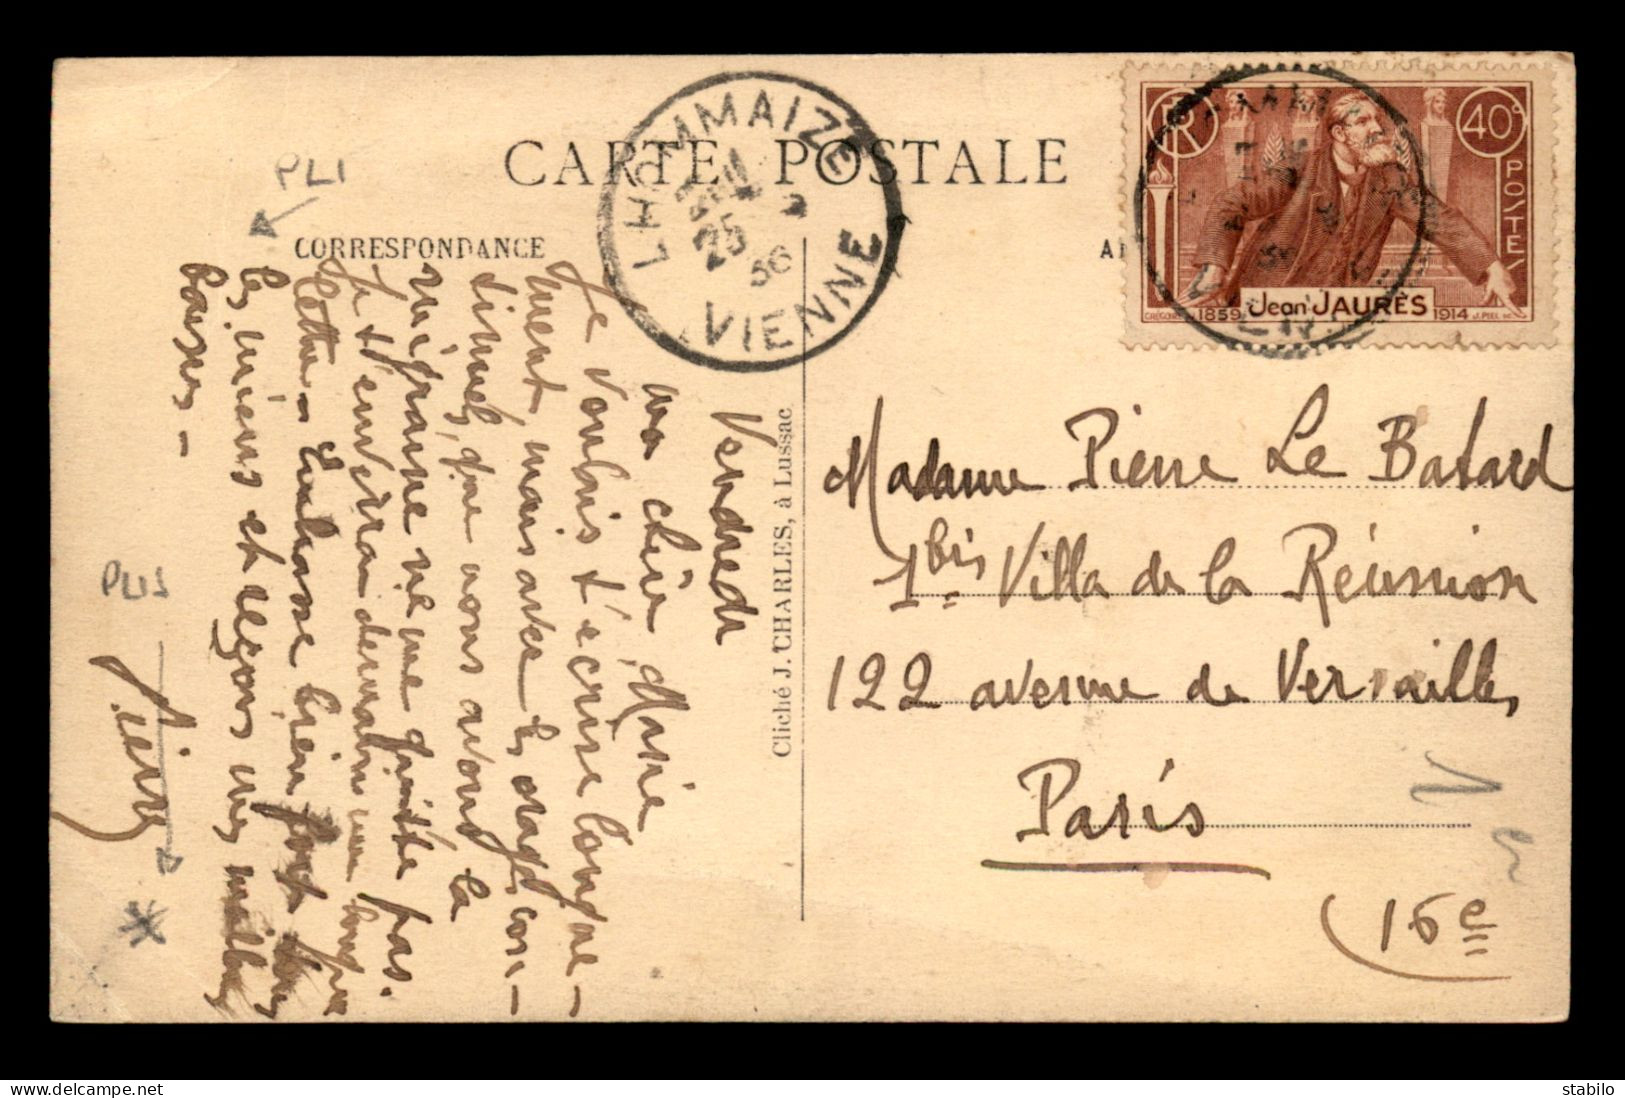 CARTE POSTALE
CORRESPONDANCE
PLI
LHOMMAIZE
25
36
VIENNE
RF
40c
POSTES
1859 Jean JAURÈS 1914
Vendredi
ma chère Marie
Je voulais t'écrire longue-
ment, mais avec les orages con-
tinuels que nous avons la
migraine ne me quitte pas.
Je t'enverrai demain une longue
lettre - Embrasse bien fort tous
les miens et reçois mes meilleurs
baisers -
Pierre
PLIS
Cliché J. CHARLES, à Lussac
Madame Pierre Le Batard
1bis Villa de la Réunion
122 avenue de Versailles
Paris
(16e
stabilo
delcampe.net